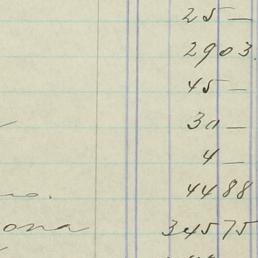 25 —
2903
45 —
30 —
4 —
no. 4488
ona 34575